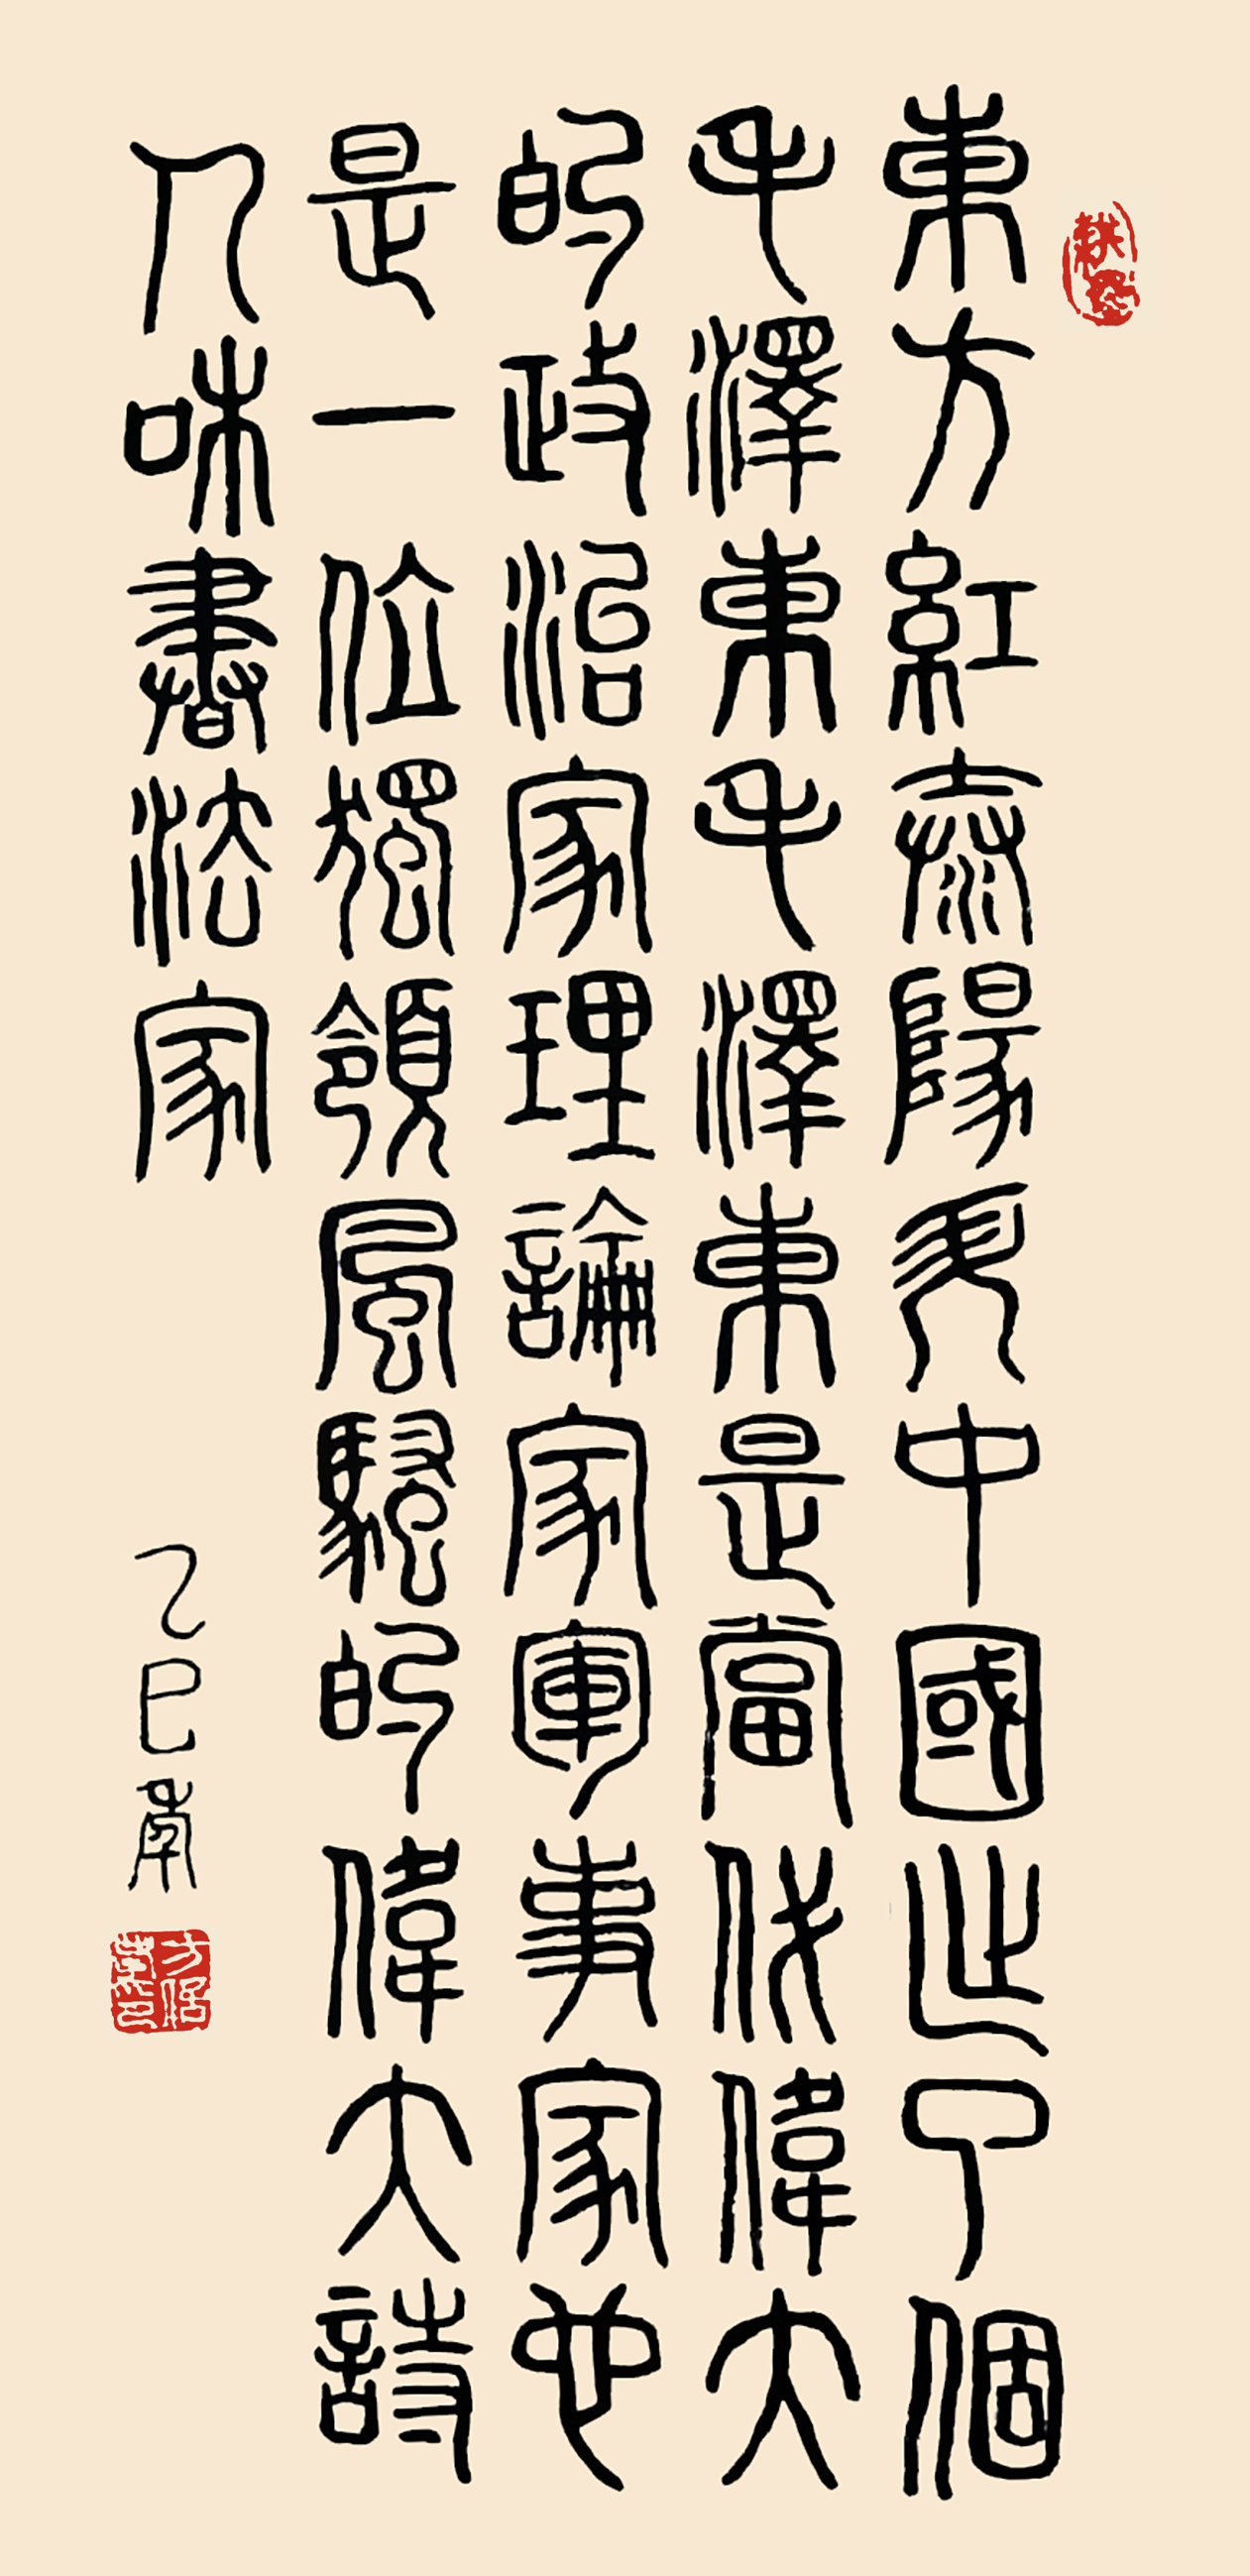 東方紅泰陽升中國出了個
毛澤東毛澤東是當代偉大
的政治家理論家軍事家也
是一位獨領風騷的偉大詩
人咊書法家
乙巳南